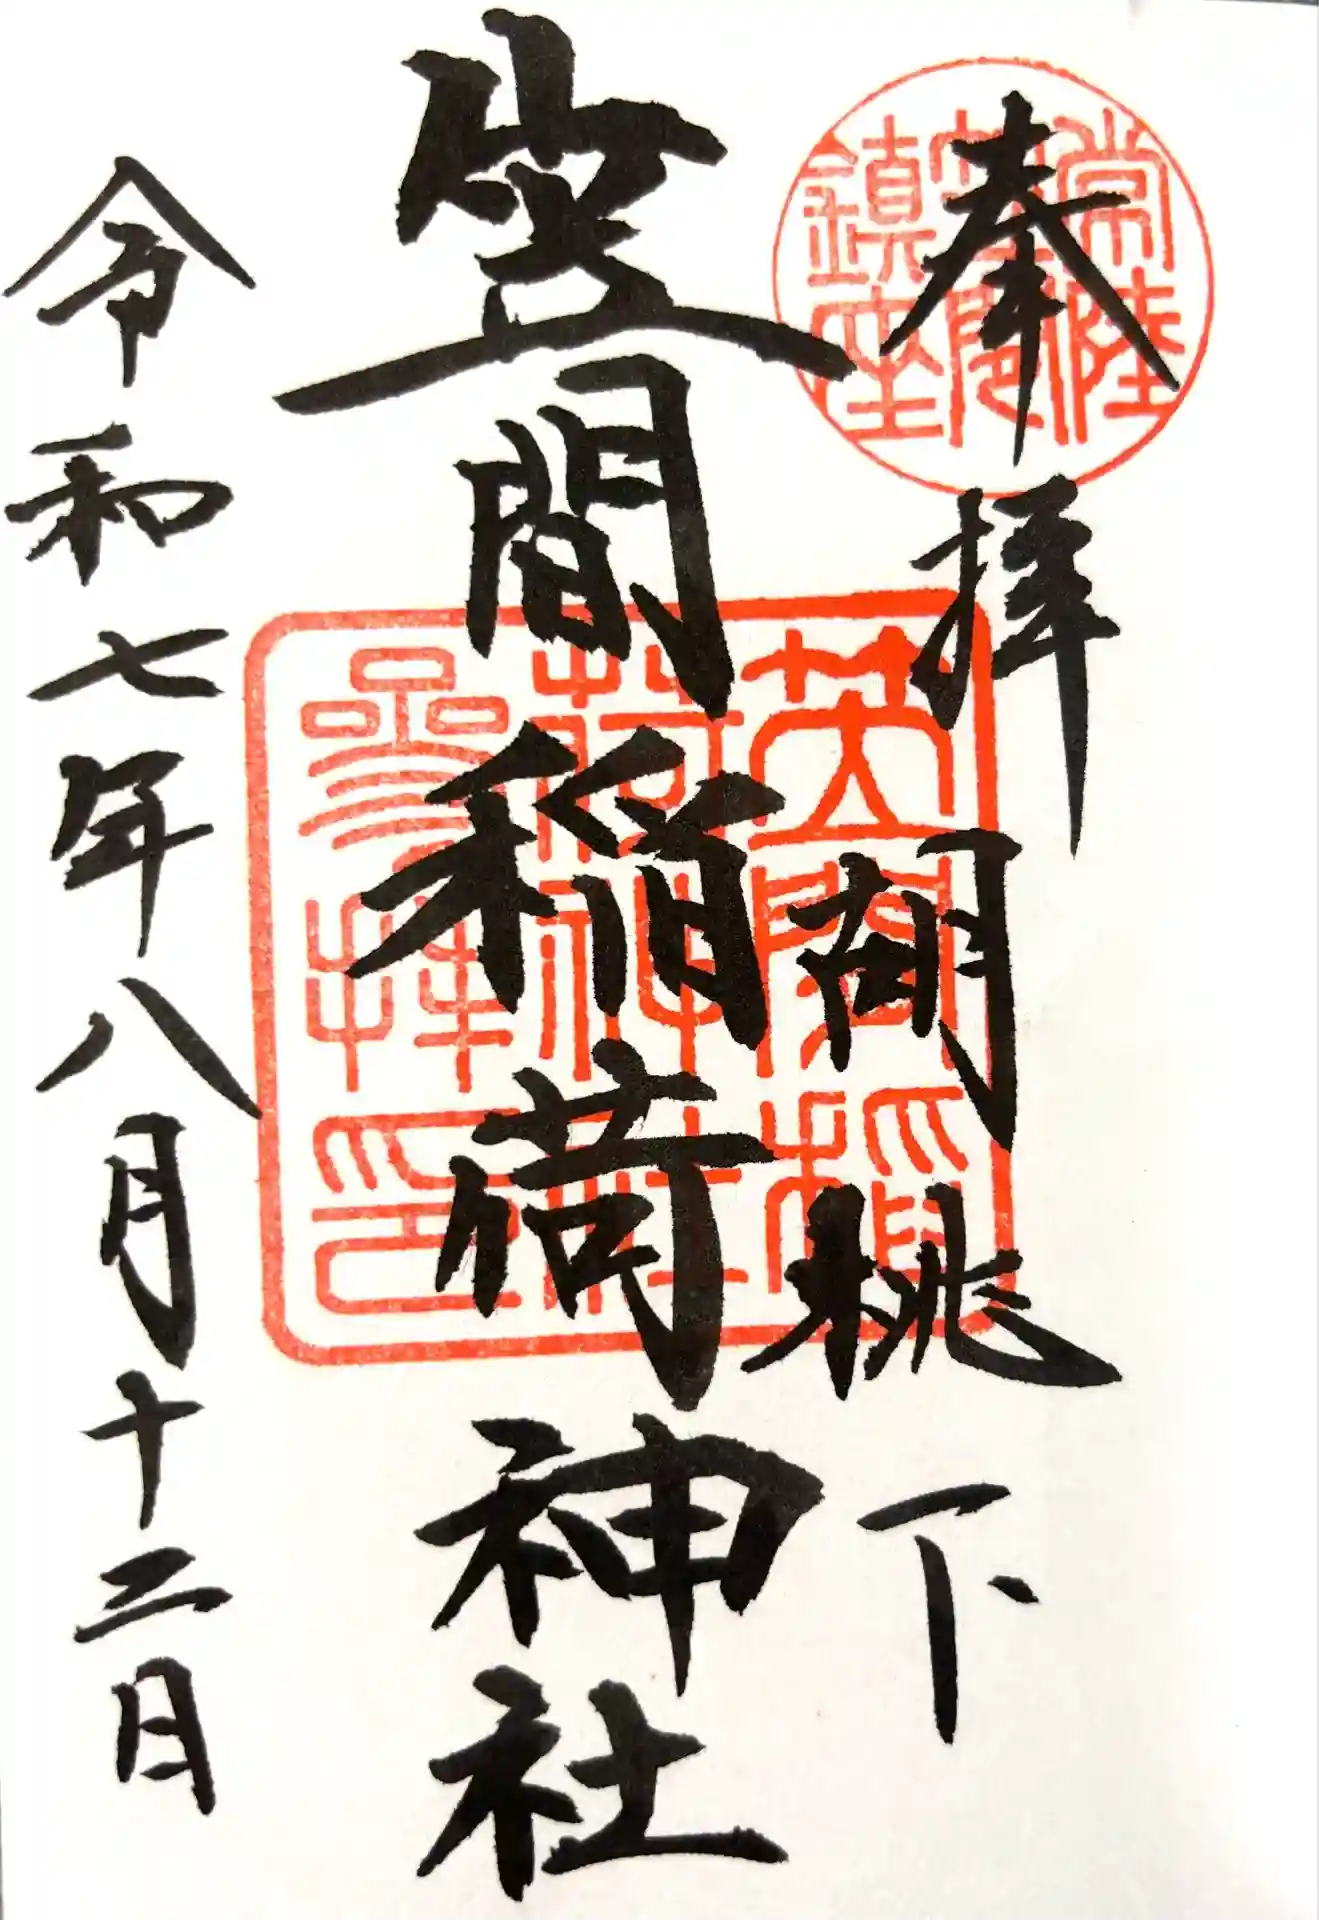 奉拝
胡桃下
笠間稲荷神社
令和七年八月十二日
常陸
笠間
鎮座
笠間稲
荷神社
参拝印